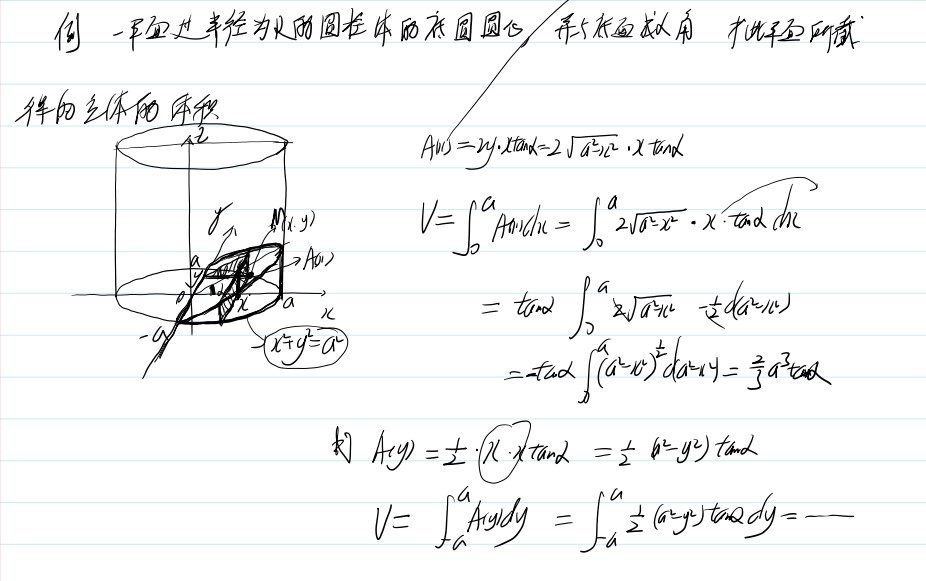 例 一平面过半径为R的圆柱体的底圆圆心 并与底面成α角 求此平面所截
得的立体的体积
z
y
M(x.y)
a
A(x)
0 α x a x
-a
x²+y²=a²
A(x)=2y·xtanα=2√(a²-x²)·xtanα
V=∫₀ᵃA(x)dx=∫₀ᵃ2√(a²-x²)·x·tanα dx
=tanα∫₀ᵃ2√(a²-x²) -½d(a²-x²)
=-tanα∫₀ᵃ(a²-x²)^½d(a²-x²)=⅔a³tanα
A(y)=½·x·xtanα=½(a²-y²)tanα
V=∫₋ₐᵃA(y)dy=∫₋ₐᵃ½(a²-y²)tanαdy=——